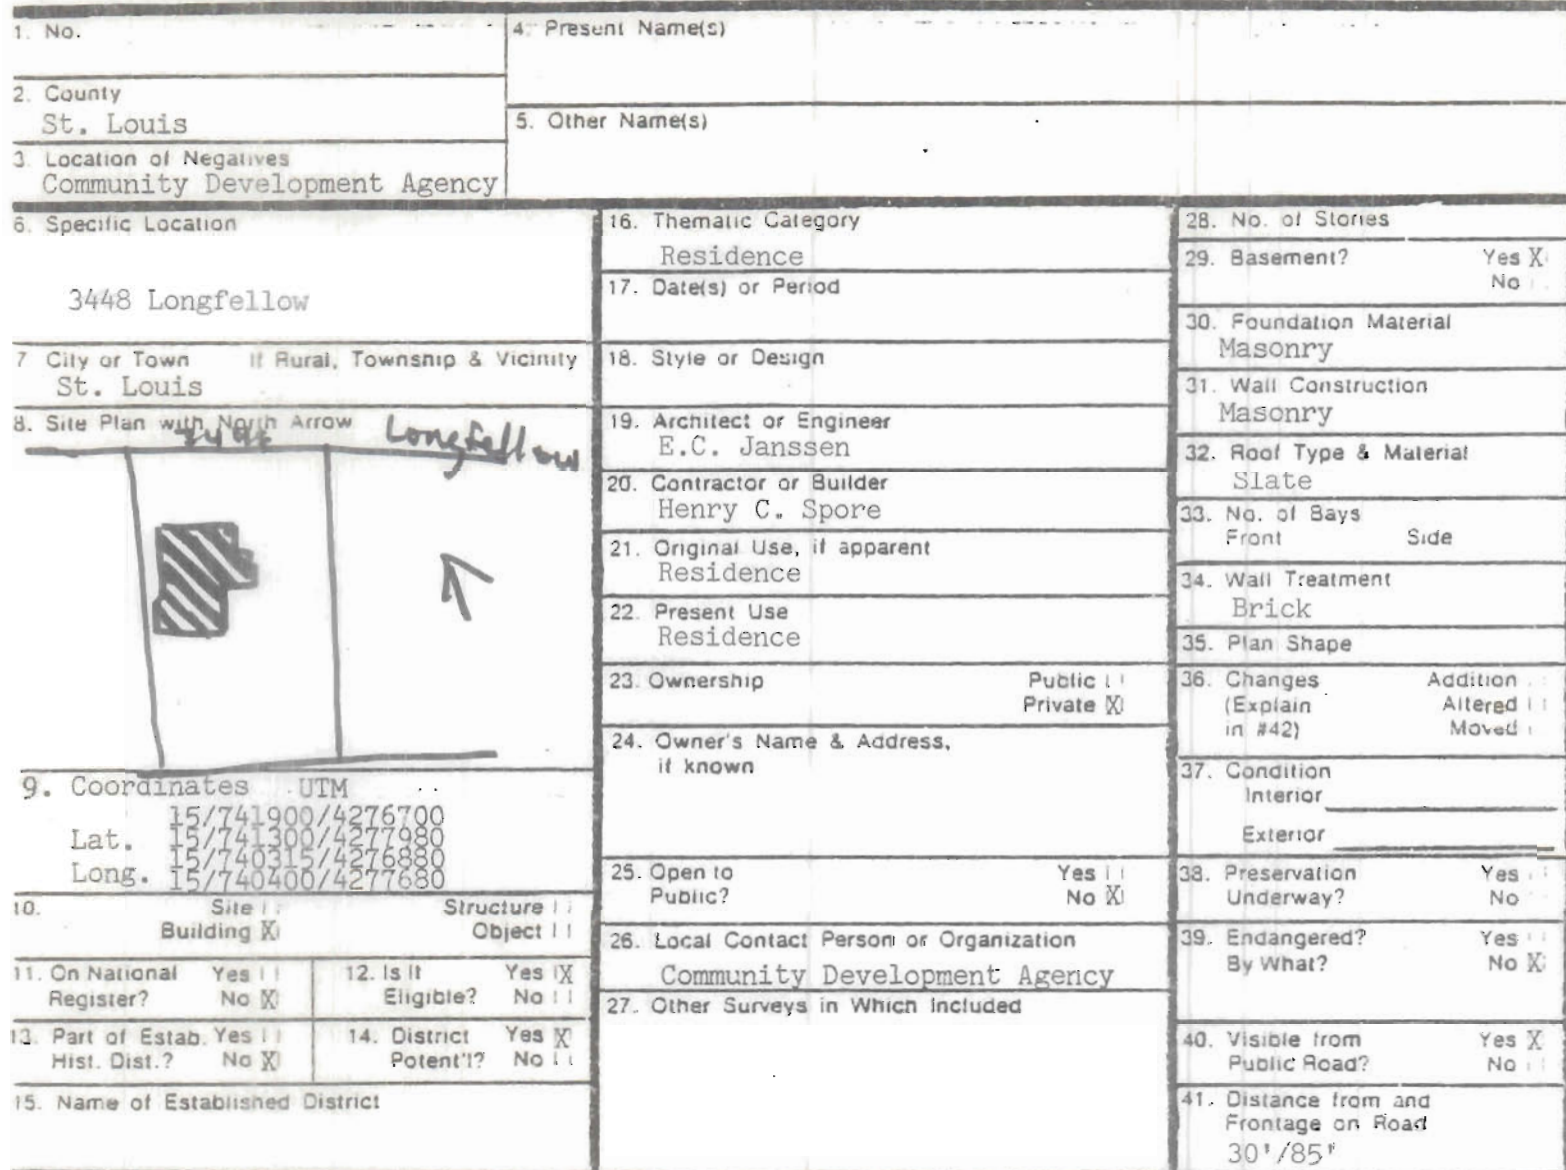 1. No.
4. Present Name(s)
2. County
St. Louis
5. Other Name(s)
3. Location of Negatives
Community Development Agency
6. Specific Location
3448 Longfellow
7 City or Town If Rural, Township & Vicinity
St. Louis
8. Site Plan with North Arrow
3448 Longfellow
9. Coordinates UTM
15/741900/4276700
Lat. 15/741300/4277980
15/740315/4276880
Long. 15/740400/4277680
10. Site Structure
Building X Object
11. On National Yes 12. Is It Yes X
Register? No X Eligible? No
13. Part of Estab. Yes 14. District Yes X
Hist. Dist.? No X Potent'l? No
15. Name of Established District
16. Thematic Category
Residence
17. Date(s) or Period
18. Style or Design
19. Architect or Engineer
E.C. Janssen
20. Contractor or Builder
Henry C. Spore
21. Original Use, if apparent
Residence
22. Present Use
Residence
23. Ownership Public
Private X
24. Owner's Name & Address,
if known
25. Open to Yes
Public? No X
26. Local Contact Person or Organization
Community Development Agency
27. Other Surveys in Which Included
28. No. of Stories
29. Basement? Yes X
No
30. Foundation Material
Masonry
31. Wall Construction
Masonry
32. Roof Type & Material
Slate
33. No. of Bays
Front Side
34. Wall Treatment
Brick
35. Plan Shape
36. Changes Addition
(Explain Altered
in #42) Moved
37. Condition
Interior
Exterior
38. Preservation Yes
Underway? No
39. Endangered? Yes
By What? No X
40. Visible from Yes X
Public Road? No
41. Distance from and
Frontage on Road
30'/85'